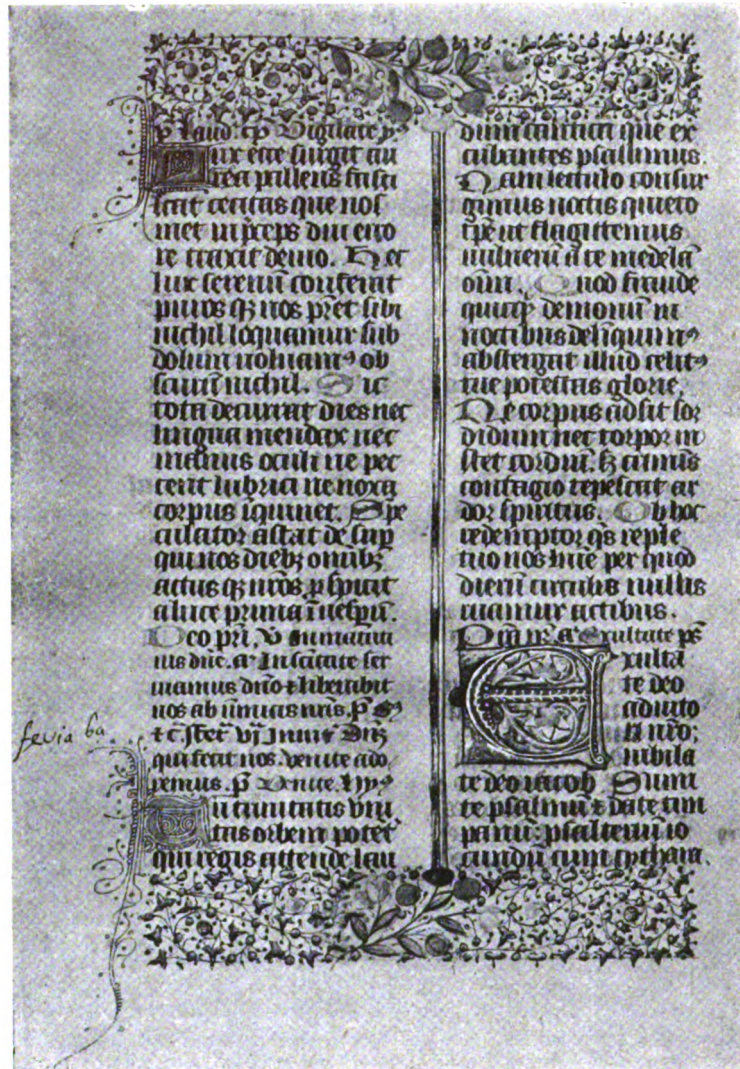 Lux ecce surgit au
rea pallens
cecitas que nos
met in p̄ceps diu erro
re traxit deuio. Hec
lux serenū conferat
puros qȝ nos p̄stet sibi
nichil loquamur sub
dolum uoluam⁹ ob
scurū nichil. Sic
tota decurrat dies nec
lingua mendax nec
manus oculi ue pec
cent lubrici ne noxa
corpus īquinet. Spe
culator astat de sup̄
qui nos diebȝ omībȝ
actus qȝ nr̄os ꝓspicit
a luce prima ī uesperū.
Deo pr̄i. v̄
nus dn̄e. a᷑ In sanctitate ser
uiamus dn̄o ⁊ liberabit
nos ab inimicis nr̄is. p̄s
Inuit̄ Dn̄s
qui fecit nos. venite ado
remus. p̄s Venite. yp̄⁹
Tu trinitatis vni
tas orbem potēt
qui regis attende lau
feria 6a
dum cantica que ex
cubantes psallimus.
Nam lectulo consur
gimus noctis quieto
tp̄e ut flagitemus
uulnerū a te medelā
oīm. Quod fraude
quicqȝ demonum in
noctibus deliquim⁹
abstergat illud celit⁹
tue potestas glorie.
Ne corpus adsit sor
didum nec torpor in
stet cordiū. sȝ criminis
contagio tepescat ar
dor spiritus. Ob hoc
redemptor q̄s reple
tuo nos lumīe per quod
dierū circulis nullis
ruamur actibus.
a᷑ Exultate ps̄
Exulta
te deo
adiuto
ri nr̄o:
iubila
te deo iacob Sumi
te psalmū ⁊ date tim
panū: psalteriū io
cundū cum cythara.